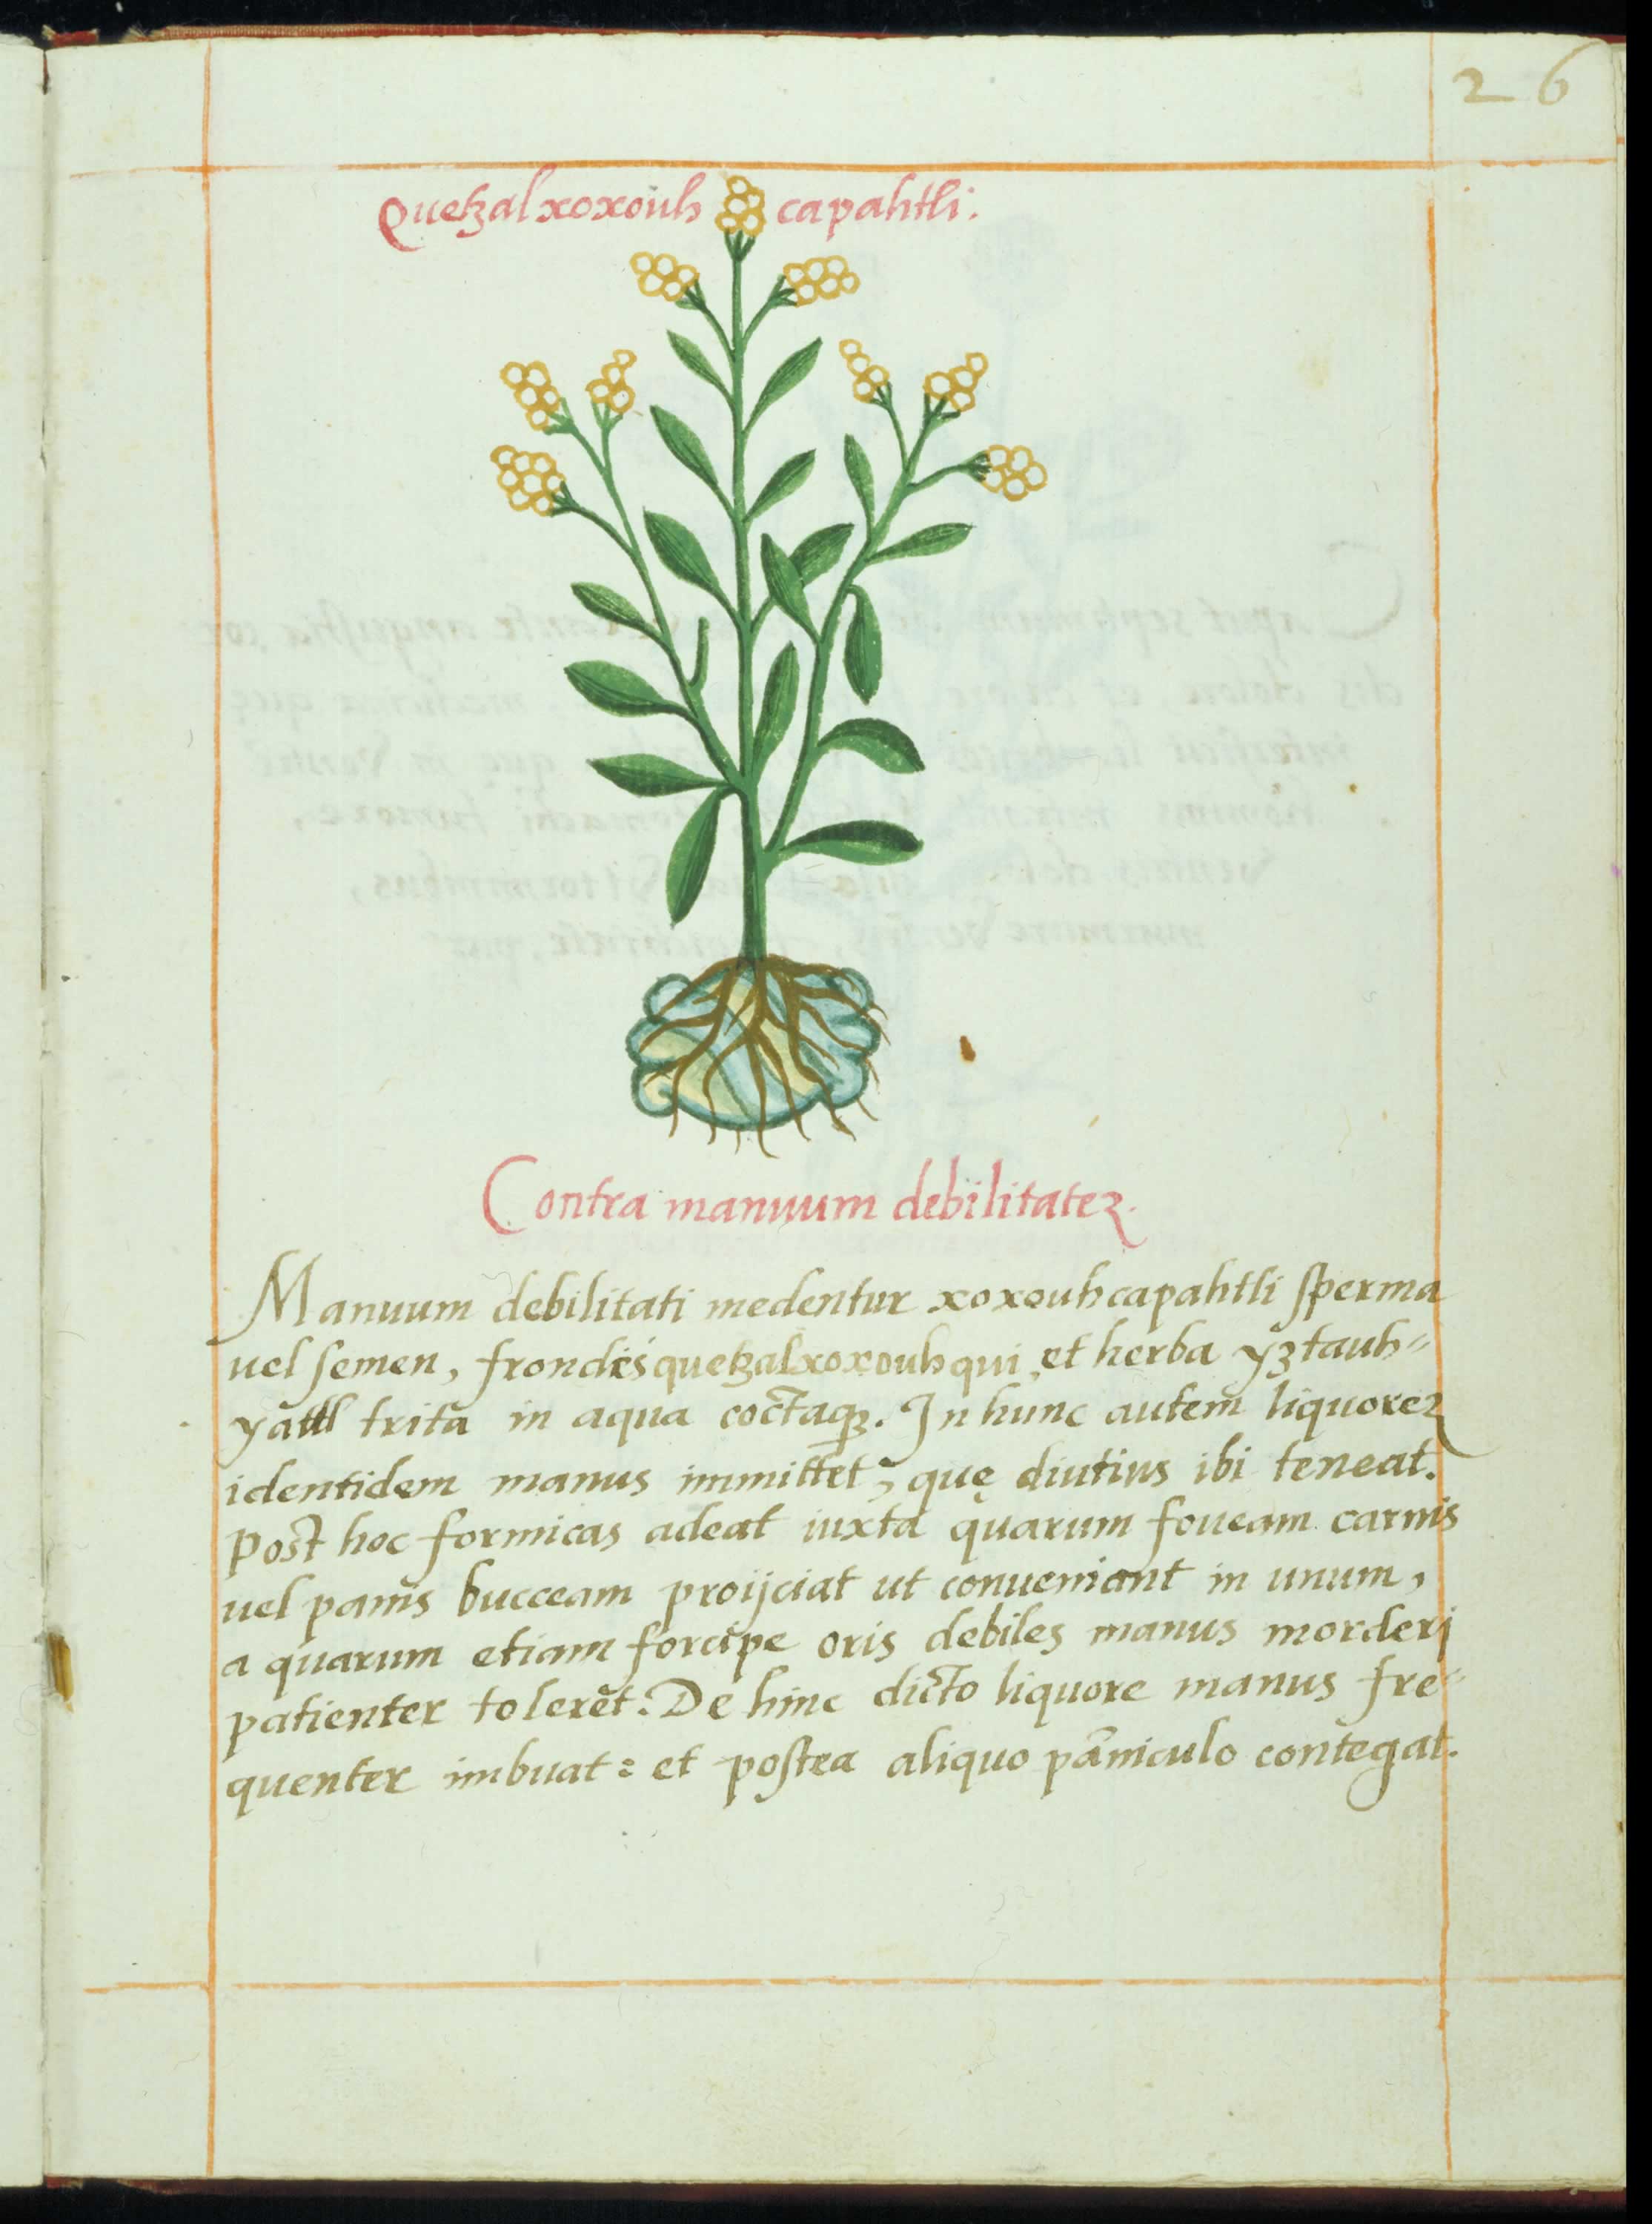 26
Quetzalxoxouh capahtli.
Contra manuum debilitatez.
Manuum debilitati medentur xoxouhcapahtli sperma
uel semen, frondes quetzalxoxouhqui, et herba yztauh-
yattl trita in aqua coctaqꝫ. In hunc autem liquorez
identidem manus immittet, quę diutius ibi teneat.
Post hoc formicas adeat iuxta quarum foueam carnis
uel panis bucceam proijciat ut conueniant in unum,
a quarum etiam forcipe oris debiles manus morderj
patienter tolerēt. De hinc dicto liquore manus fre-
quenter imbuat: et postea aliquo pāniculo contegat.